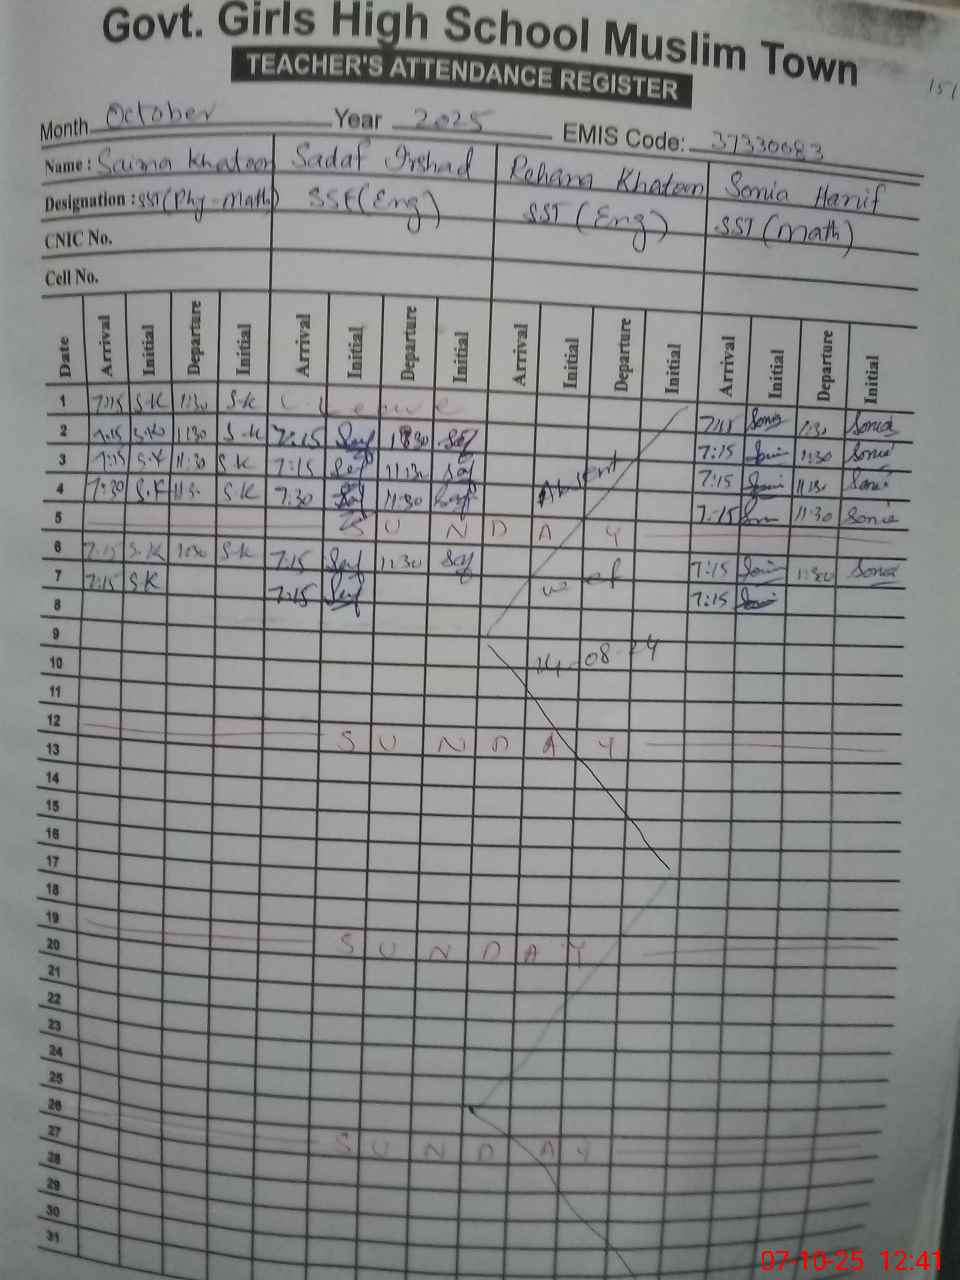 Govt. Girls High School Muslim Town
TEACHER'S ATTENDANCE REGISTER
151
Month October Year 2025 EMIS Code: 37330683
Name: Saima Khatoon Sadaf Irshad Rehana Khatoon Sonia Hanif
Designation: SST(Phy-Math) SSE(Eng) SST(Eng) SST(Math)
CNIC No.
Cell No.
Date Arrival Initial Departure Initial Arrival Initial Departure Initial Arrival Initial Departure Initial Arrival Initial Departure Initial
1 7:15 S.K 1:30 S.K C. Leave 7:15 Sonia 1:30 Sonia
2 7:15 S.K 1:30 S.K 7:15 Saf 1:30 Saf 7:15 Sonia 1:30 Sonia
3 7:15 S.K 11:30 S.K 7:15 Saf 11:30 Saf Absent 7:15 Sonia 11:30 Sonia
4 7:30 S.K 11:30 S.K 7:30 Saf 11:30 Saf 7:15 Sonia 11:30 Sonia
5 S U N D A Y
6 7:15 S.K 1:30 S.K 7:15 Saf 1:30 Saf 7:15 Sonia 1:30 Sonia
7 7:15 S.K 7:15 Saf w ef 7:15 Sonia
8
9
10 14-08-24
11
12
13 S U N D A Y
14
15
16
17
18
19
20 S U N D A Y
21
22
23
24
25
26
27 S U N D A Y
28
29
30
31
07-10-25 12:41